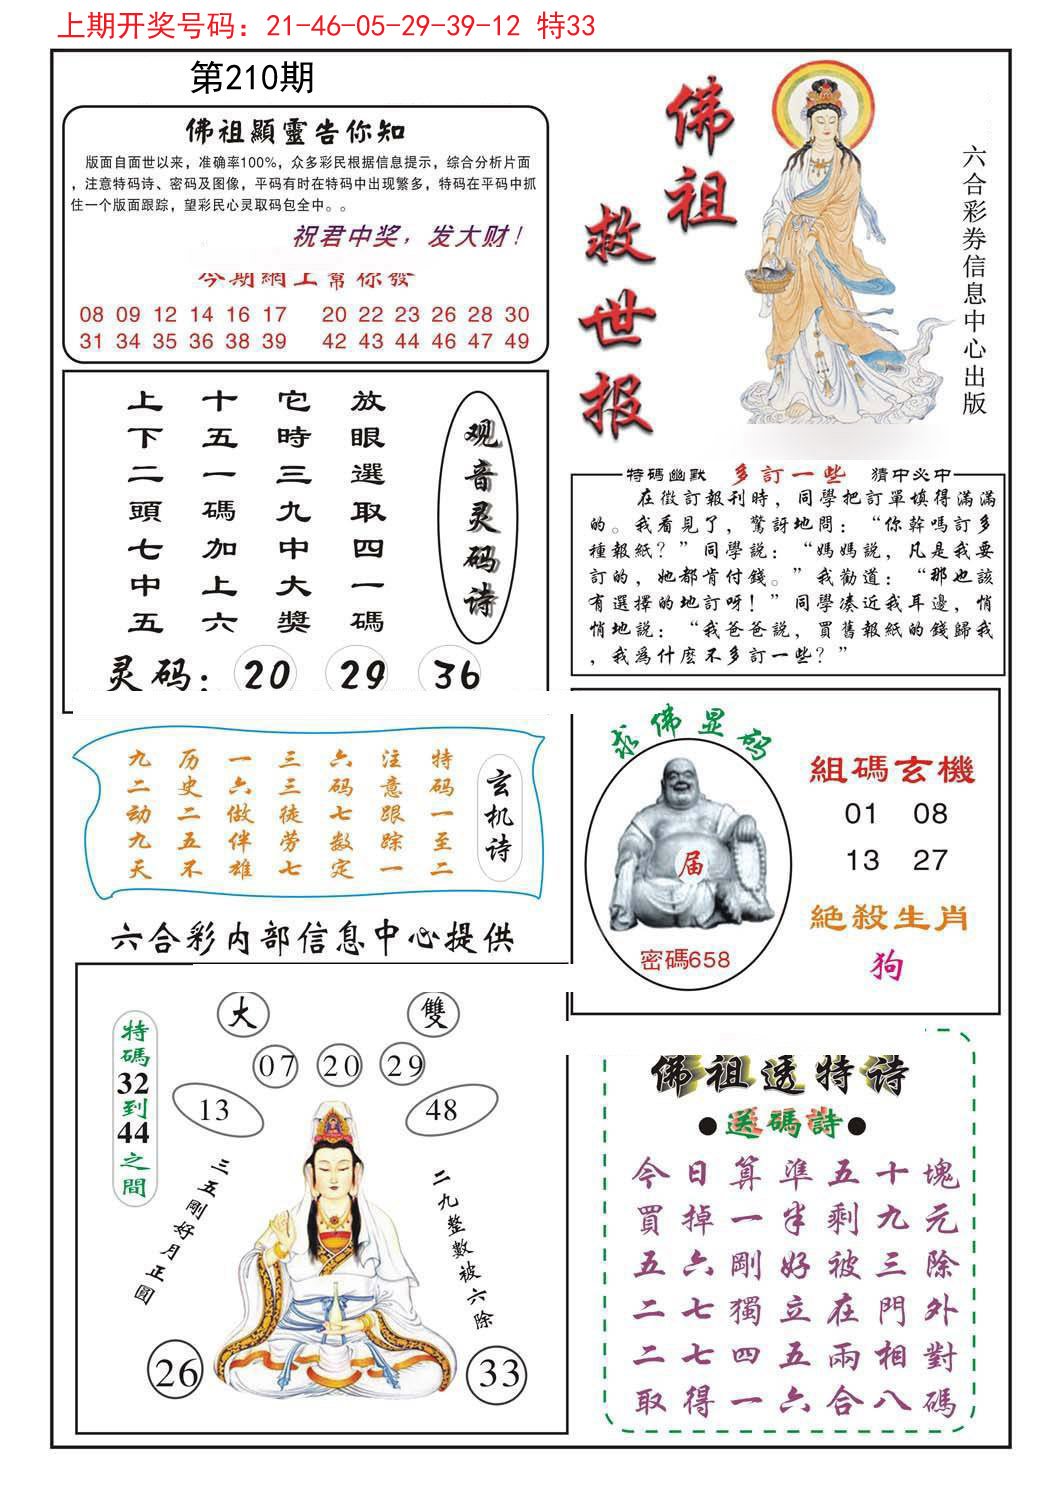 上期开奖号码：21-46-05-29-39-12 特33
第210期
佛祖顯靈告你知
版面自面世以来，准确率100%，众多彩民根据信息提示，综合分析片面
，注意特码诗、密码及图像，平码有时在特码中出现繁多，特码在平码中抓
住一个版面跟踪，望彩民心灵取码包全中。。
祝君中奖，发大财！
今期網上幫你發
08 09 12 14 16 17 20 22 23 26 28 30
31 34 35 36 38 39 42 43 44 46 47 49
佛祖
救世报
六合彩券信息中心出版
观音灵码诗
放眼選取四一碼
它時三九中大獎
十五一碼加上六
上下二頭七中五
灵码：20 29 36
特碼幽默 多訂一些 猜中必中
在徵訂報刊時，同學把訂單填得滿滿
的。我看見了，驚訝地問：“你幹嗎訂多
種報紙？”同學説：“媽媽説，凡是我要
訂的，她都肯付錢。”我勸道：“那也該
有選擇的地訂呀！”同學凑近我耳邊，悄
悄地説：“我爸爸説，買舊報紙的錢歸我
，我爲什麽不多訂一些？”
玄机诗
特码一至二
注意跟踪一
六码七数定
三三徒劳七
一六做伴雄
历史二五不
九二动九天
求佛显码
届
密碼658
組碼玄機
01 08
13 27
絕殺生肖
狗
六合彩内部信息中心提供
大 雙
07 20 29
13 48
特碼32到44之間
三五剛好月正圓
二九整數被六除
26 33
佛祖透特诗
●送碼詩●
今日算準五十塊
買掉一半剩九元
五六剛好被三除
二七獨立在門外
二七四五兩相對
取得一六合八碼